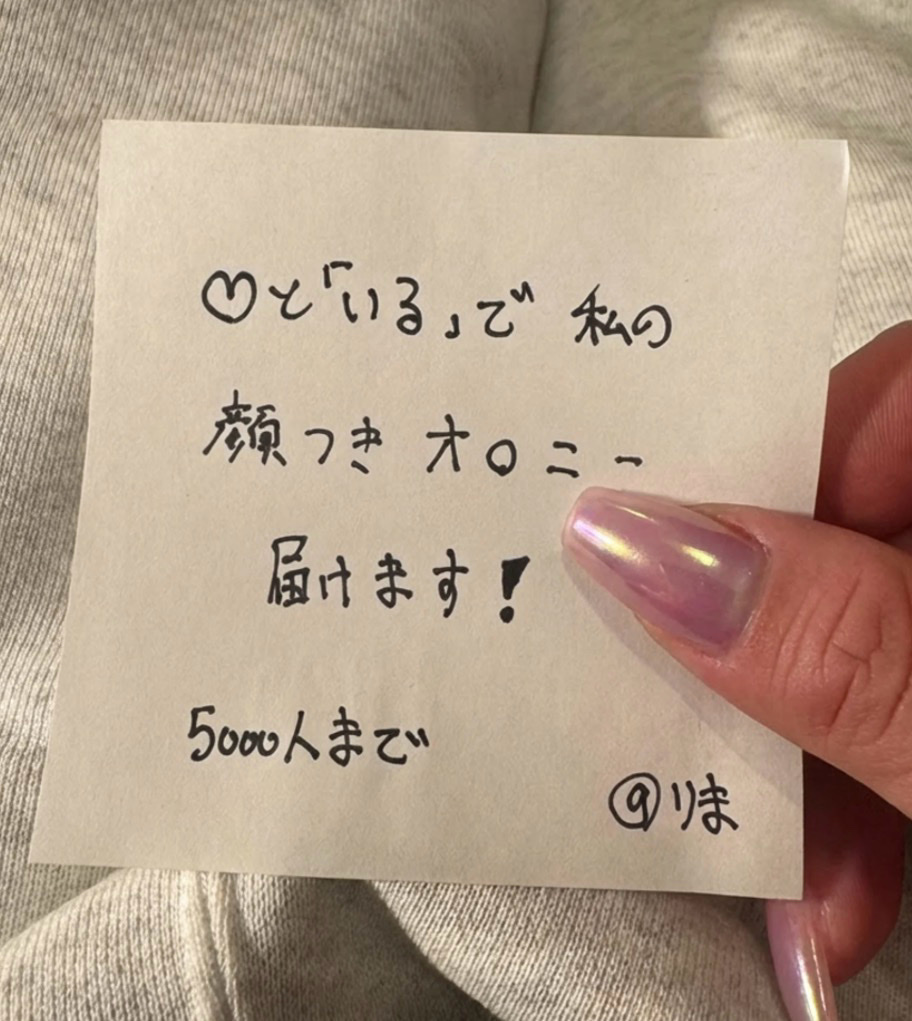 ♡と「いる」で 私の
顔つき オ○ニー
届けます!
5000人まで
@りま